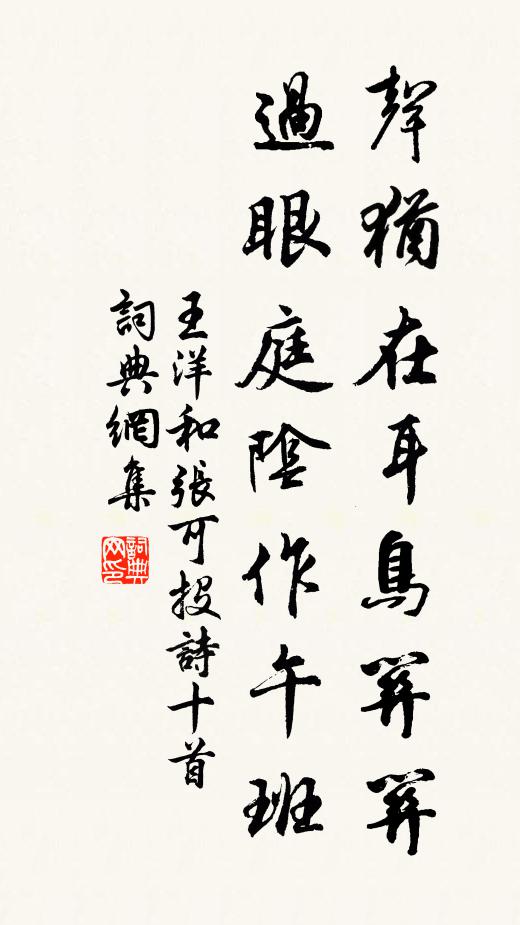 聲猶在耳鳥關關
過眼庭陰作午班
王洋和張可投詩十首
詞典網集
詞典网印